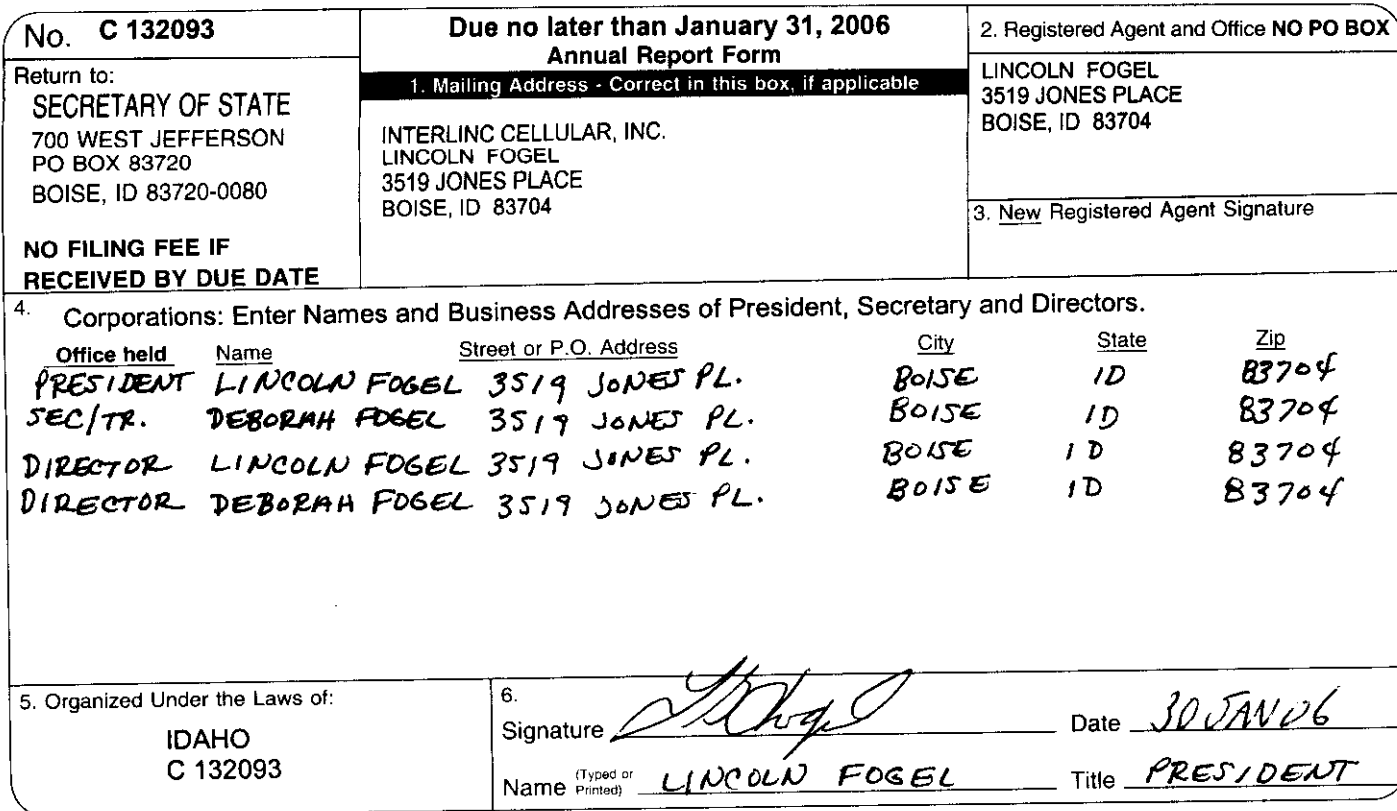 No. C 132093
Return to:
SECRETARY OF STATE
700 WEST JEFFERSON
PO BOX 83720
BOISE, ID 83720-0080
NO FILING FEE IF
RECEIVED BY DUE DATE
Due no later than January 31, 2006
Annual Report Form
1. Mailing Address - Correct in this box, if applicable
INTERLINC CELLULAR, INC.
LINCOLN FOGEL
3519 JONES PLACE
BOISE, ID 83704
2. Registered Agent and Office NO PO BOX
LINCOLN FOGEL
3519 JONES PLACE
BOISE, ID 83704
3. New Registered Agent Signature
4. Corporations: Enter Names and Business Addresses of President, Secretary and Directors.
Office held Name Street or P.O. Address City State Zip
PRESIDENT LINCOLN FOGEL 3519 JONES PL. BOISE ID 83704
SEC/TR. DEBORAH FOGEL 3519 JONES PL. BOISE ID 83704
DIRECTOR LINCOLN FOGEL 3519 JONES PL. BOISE ID 83704
DIRECTOR DEBORAH FOGEL 3519 JONES PL. BOISE ID 83704
5. Organized Under the Laws of:
IDAHO
C 132093
6.
Signature Date 30 JAN 06
Name (Typed or Printed) LINCOLN FOGEL Title PRESIDENT